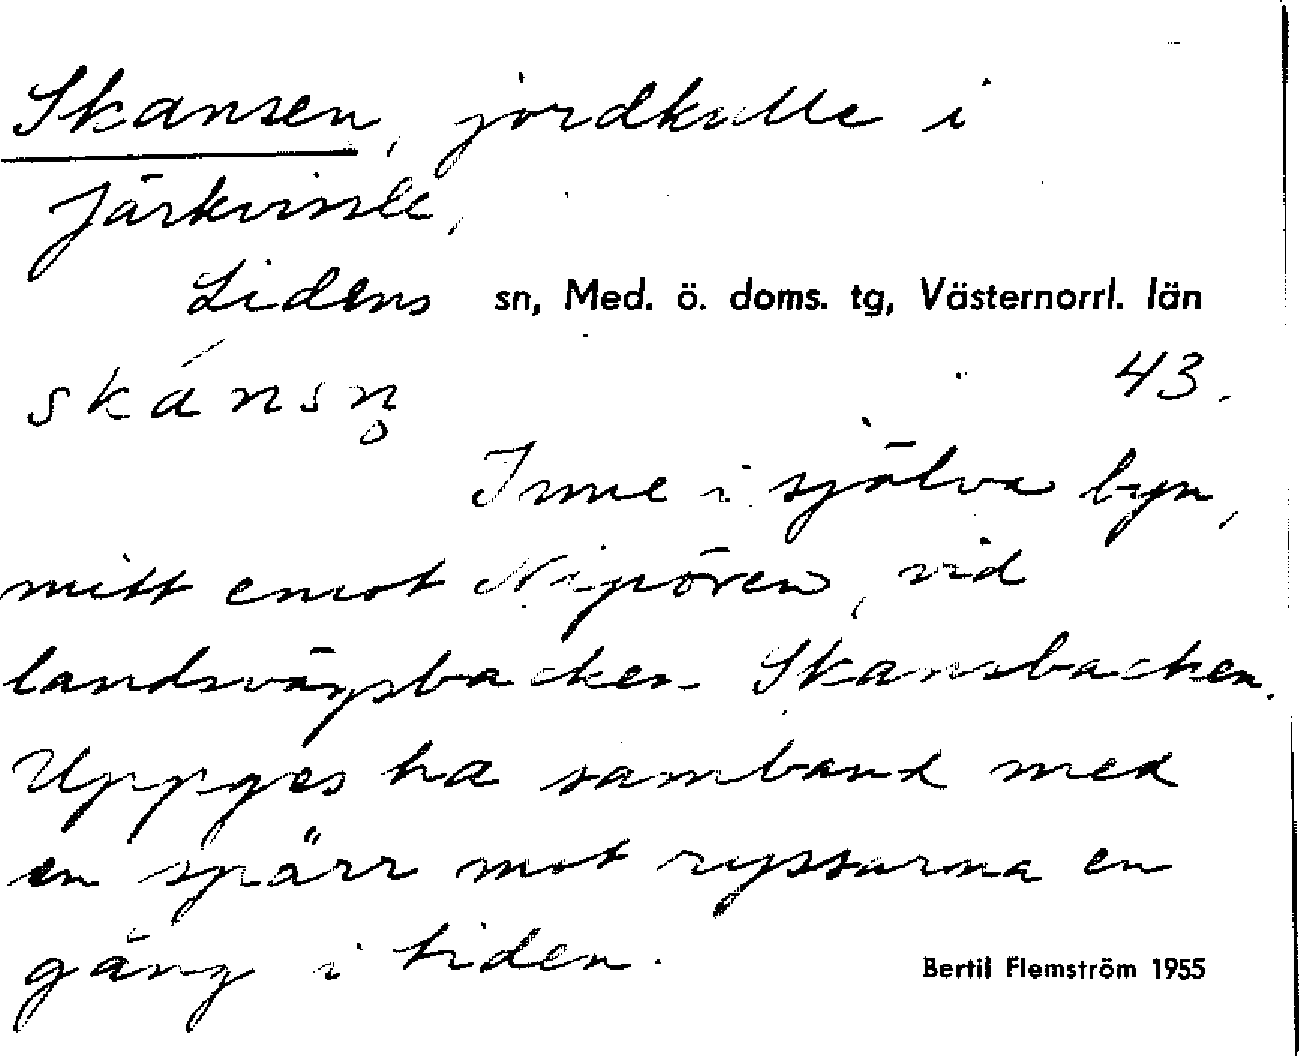 Skansen, jordkulle i
Järkvissle,
Lidens sn, Med. ö. doms. tg, Västernorrl. län
skánsn̥ 43.
Inne i själva byn,
mitt emot Nipören, vid
landsvägsbacken Skansbacken.
Uppges ha samband med
en spärr mot ryssarna en
gång i tiden.
Bertil Flemström 1955